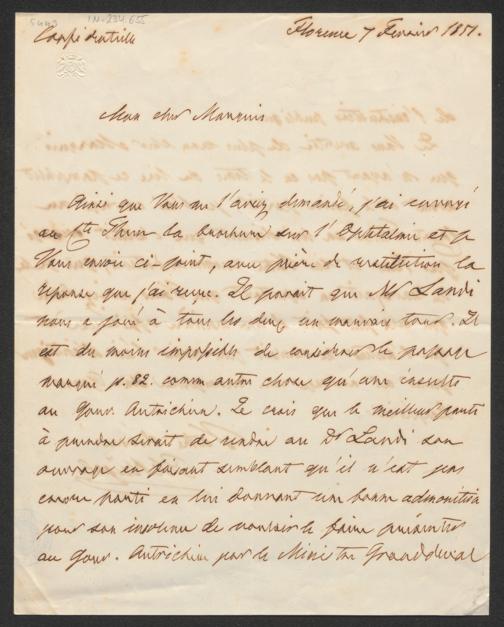 5443
IN-234.655
Confidentielle
Florence 7 Fevrier 1851.
Mon cher Marquis
Ainsi que Vous me l'aviez demandé, j'ai envoyé
au Cte Thun la brochure sur l'Ophtalmie et je
Vous envoie ci-joint, avec prière de restitution la
réponse que j'ai reçue. Il parait que Mr Landi
nous a joué à tous les deux un mauvais tour. Il
est du moins impossible de considérer le passage
marqué p. 82. comme autre chose qu'une insulte
au Gouv. Autrichien. Je crois que le meilleur parti
à prendre serait de rendre au Dr Landi son
ouvrage en faisant semblant qu'il n'est pas
encore parti en lui donnant une bonne admonition
pour son insolence de vouloir le faire présenter
au Gouv. Autrichien par le Ministre Grandducal